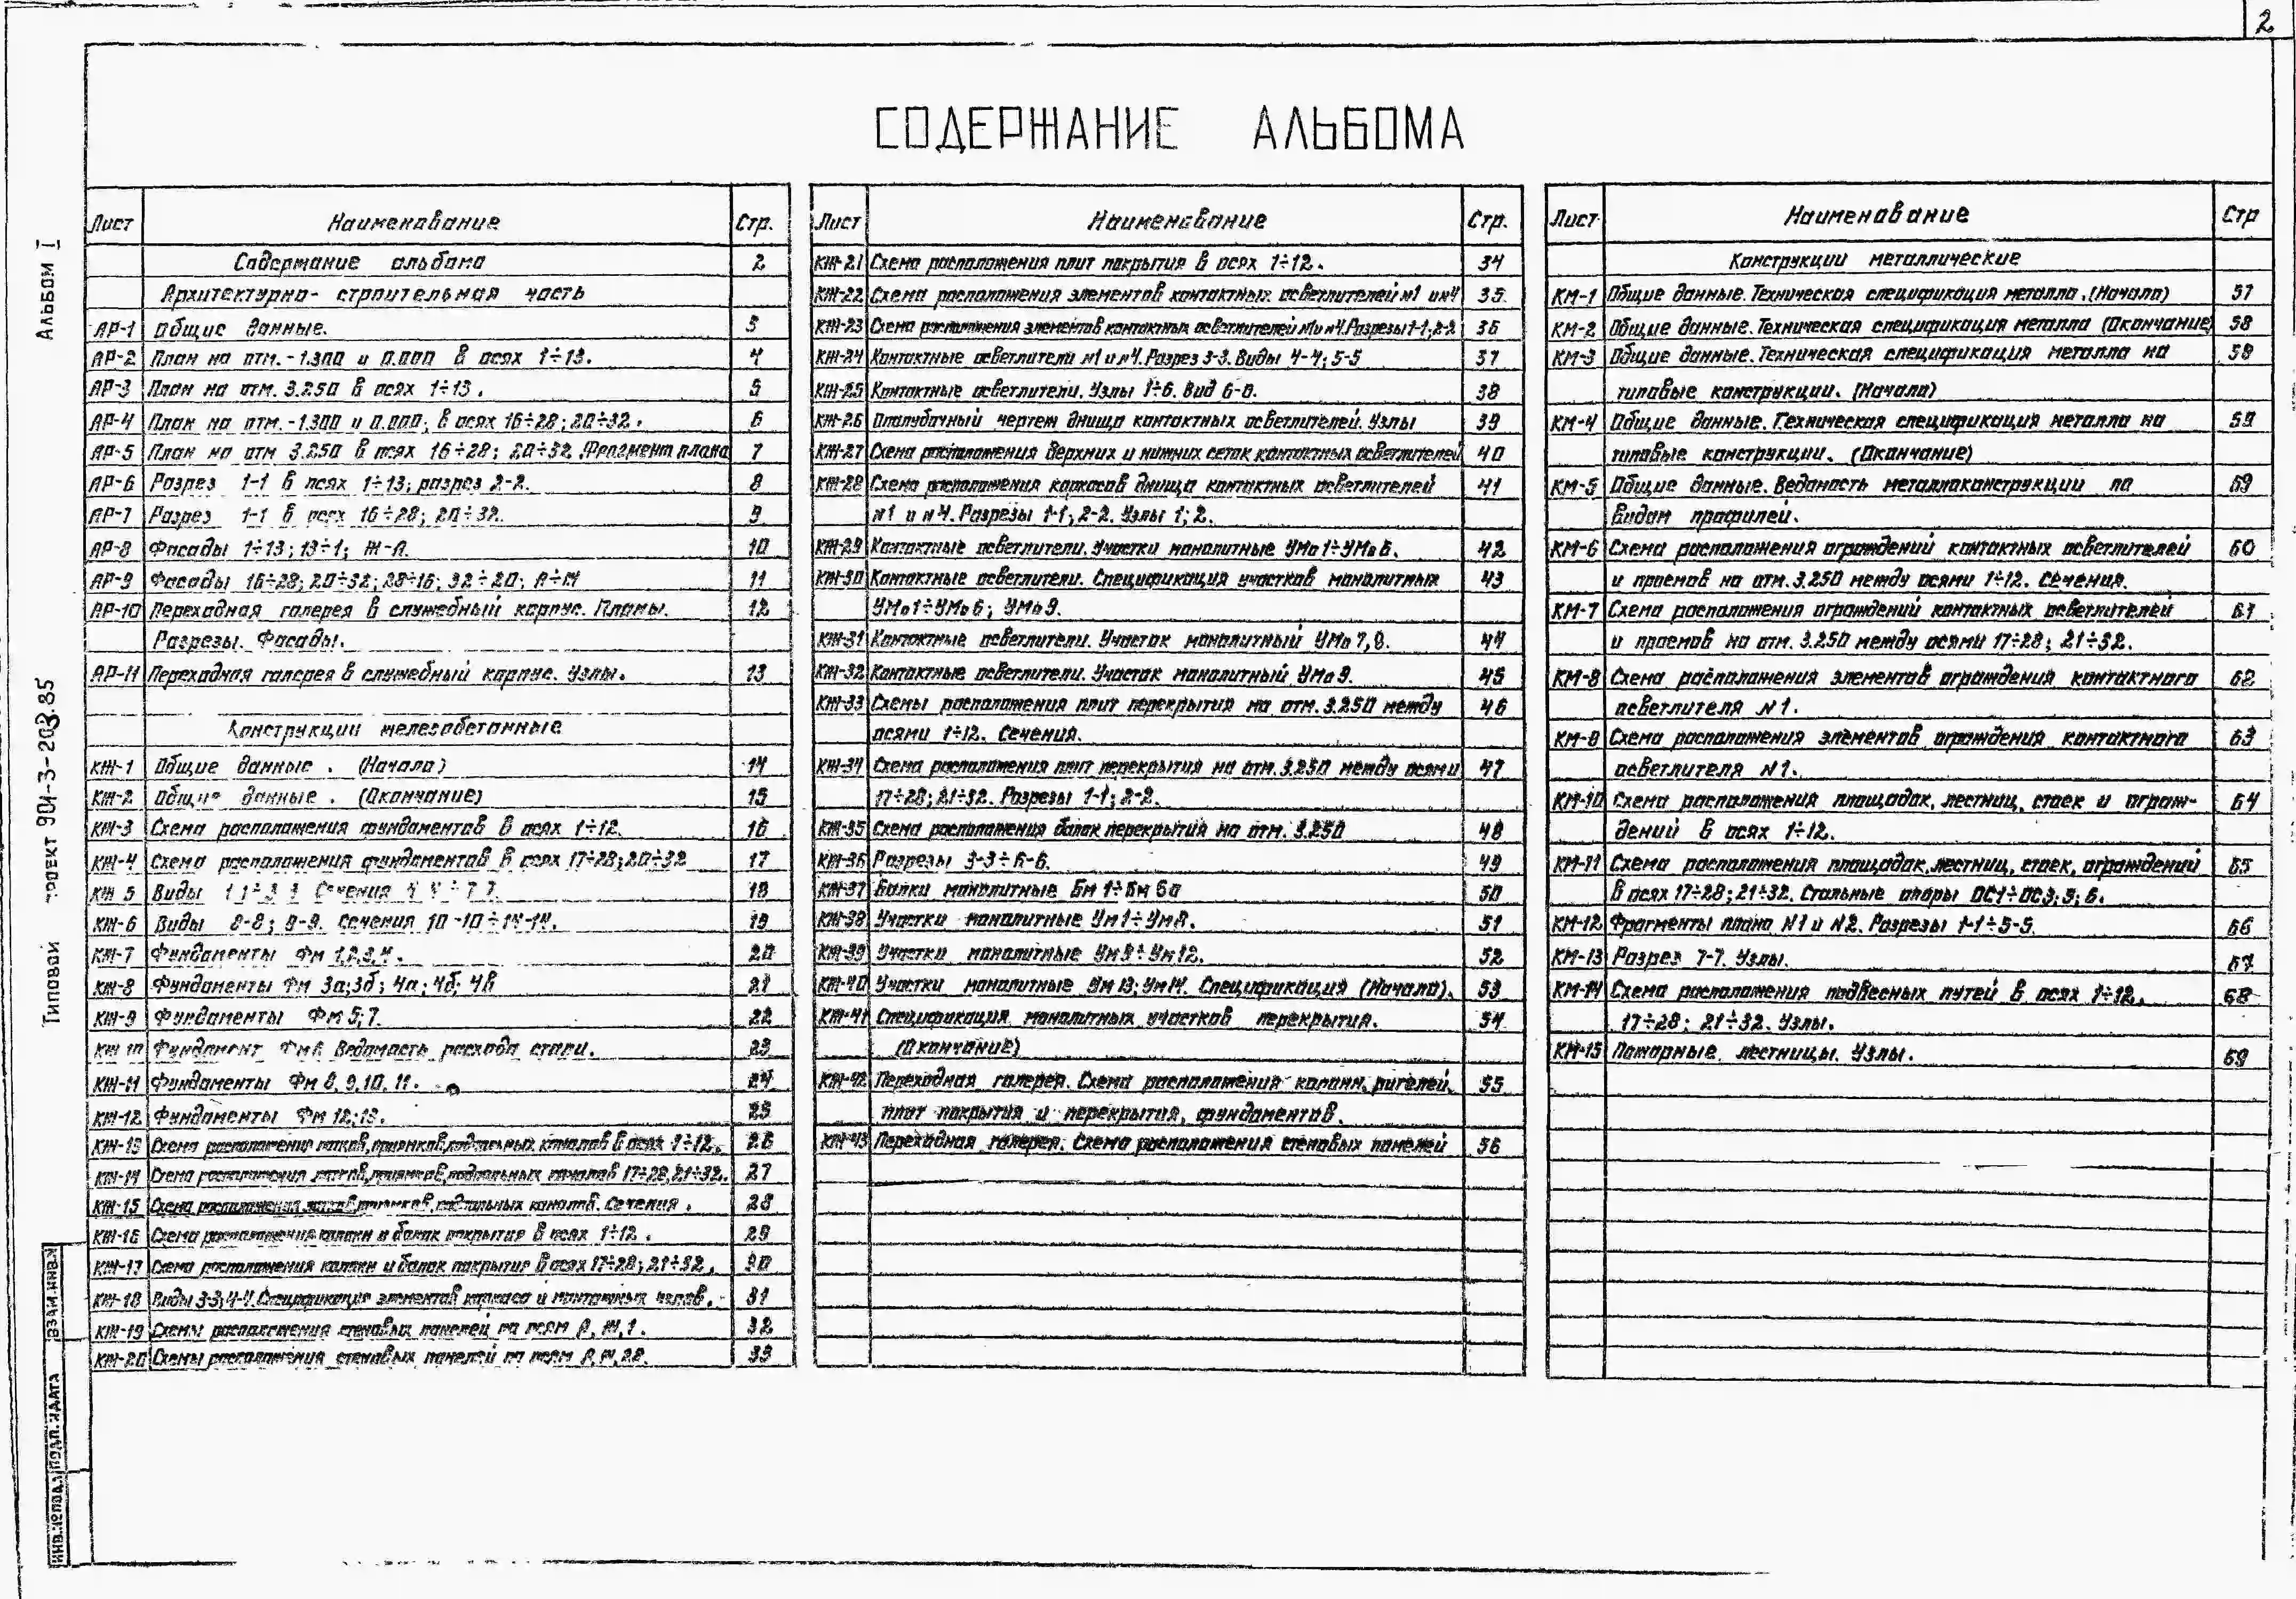 2
СОДЕРЖАНИЕ АЛЬБОМА
Альбом I
Типовой проект 901-3-203.85
Взам.инв.№
Подп. и дата
Инв.№ подл.
Лист Наименование Стр.
Содержание альбома 2
Архитектурно-строительная часть
АР-1 Общие данные. 3
АР-2 План на отм. -1.300 и 0.000 в осях 1÷13. 4
АР-3 План на отм. 3.250 в осях 1÷13. 5
АР-4 План на отм. -1.300 и 0.000, в осях 16÷28; 20÷32. 6
АР-5 План на отм 3.250 в осях 16÷28; 20÷32. Фрагмент плана 7
АР-6 Разрез 1-1 в осях 1÷13; разрез 2-2. 8
АР-7 Разрез 1-1 в осях 16÷28; 20÷32. 9
АР-8 Фасады 1÷13; 13÷1; Ж-А. 10
АР-9 Фасады 16÷28; 20÷32; 28÷16; 32÷20; 11
АР-10 Переходная галерея в служебный корпус. Планы. 12
Разрезы. Фасады.
АР-11 Переходная галерея в служебный корпус. Узлы. 13
Конструкции железобетонные
КЖ-1 Общие данные. (Начало) 14
КЖ-2 Общие данные. (Окончание) 15
КЖ-3 Схема расположения фундаментов в осях 1÷12. 16
КЖ-4 Схема расположения фундаментов в осях 17÷28; 20÷32 17
КЖ 5 Виды Сечения 18
КЖ-6 Виды 8-8; 9-9. Сечения 10-10÷14-14. 19
КЖ-7 Фундаменты Фм 1,2,3,4. 20
КЖ-8 Фундаменты Фм 3а;3б; 4а; 4б; 4в 21
КЖ-9 Фундаменты Фм 5; 7. 22
КЖ 10 Фундамент Фм 6 Ведомость расхода стали. 23
КЖ-11 Фундаменты Фм 8, 9, 10, 11. 24
КЖ-12 Фундаменты Фм 12; 13. 25
КЖ-13 Схема расположения лотков, приямков, подпольных каналов в осях 1÷12. 26
КЖ-14 Схема расположения лотков, приямков, подпольных каналов 17÷28, 21÷32. 27
КЖ-15 Схема расположения лотков, приямков, подпольных каналов. Сечения. 28
КЖ-16 Схема расположения колонн и балок покрытия в осях 1÷12. 29
КЖ-17 Схема расположения колонн и балок покрытия в осях 17÷28; 21÷32. 30
КЖ-18 Виды 3-3; 4-4. Спецификация элементов каркаса и монтажных узлов. 31
КЖ-19 Схемы расположения стеновых панелей по осям А, Ж, 1. 32
КЖ-20 Схемы расположения стеновых панелей по осям А, Ж, 28. 33
Лист Наименование Стр.
КЖ-21 Схема расположения плит покрытия в осях 1÷12. 34
КЖ-22 Схема расположения элементов контактных осветлителей №1 и №4 35.
КЖ-23 Схема расположения элементов контактных осветлителей №1 и №4. Разрезы 1-1; 2-2 36
КЖ-24 Контактные осветлители №1 и №4. Разрез 3-3. Виды 4-4; 5-5 37
КЖ-25 Контактные осветлители. Узлы 1÷6. Вид 6-6. 38
КЖ-26 Опалубочный чертеж днища контактных осветлителей. Узлы 39
КЖ-27 Схема расположения верхних и нижних сеток контактных осветлителей 40
КЖ-28 Схема расположения каркасов днища контактных осветлителей 41
№1 и №4. Разрезы 1-1; 2-2. Узлы 1; 2.
КЖ-29 Контактные осветлители. Участки монолитные УМо1÷УМо6. 42
КЖ-30 Контактные осветлители. Спецификация участков монолитных 43
УМо1÷УМо6; УМо9.
КЖ-31 Контактные осветлители. Участок монолитный УМо 7, 8. 44
КЖ-32 Контактные осветлители. Участок монолитный УМо 9. 45
КЖ-33 Схемы расположения плит перекрытия на отм. 3.250 между 46
осями 1÷12. Сечения.
КЖ-34 Схема расположения плит перекрытия на отм. 3.250 между осями 47
17÷28; 21÷32. Разрезы 1-1; 2-2.
КЖ-35 Схема расположения балок перекрытия на отм. 3.250 48
КЖ-36 Разрезы 3-3÷6-6. 49
КЖ-37 Балки монолитные Бм 1÷Бм 6а 50
КЖ-38 Участки монолитные Ум1÷Ум8. 51
КЖ-39 Участки монолитные Ум9÷Ум12. 52
КЖ-40 Участки монолитные Ум13; Ум14. Спецификация (Начало). 53
КЖ-41 Спецификация монолитных участков перекрытия. 54
(Окончание)
КЖ-42 Переходная галерея. Схема расположения колонн, ригелей, 55
плит покрытия и перекрытия, фундаментов.
КЖ-43 Переходная галерея. Схема расположения стеновых панелей 56
Лист Наименование Стр
Конструкции металлические
КМ-1 Общие данные. Техническая спецификация металла. (Начало) 57
КМ-2 Общие данные. Техническая спецификация металла (Окончание) 58
КМ-3 Общие данные. Техническая спецификация металла на 58
типовые конструкции. (Начало)
КМ-4 Общие данные. Техническая спецификация металла на 59
типовые конструкции. (Окончание)
КМ-5 Общие данные. Ведомость металлоконструкции по 59
видам профилей.
КМ-6 Схема расположения ограждений контактных осветлителей 60
и проемов на отм. 3.250 между осями 1÷12. Сечения.
КМ-7 Схема расположения ограждений контактных осветлителей 61
и проемов на отм. 3.250 между осями 17÷28; 21÷32.
КМ-8 Схема расположения элементов ограждения контактного 62
осветлителя №1.
КМ-9 Схема расположения элементов ограждения контактного 63
осветлителя №1.
КМ-10 Схема расположения площадок, лестниц, стоек и ограж- 64
дений в осях 1÷12.
КМ-11 Схема расположения площадок, лестниц, стоек, ограждений 65
в осях 17÷28; 21÷32. Стальные опоры ОС1÷ОС3; 5; 6.
КМ-12 Фрагменты плана №1 и №2. Разрезы 1-1÷5-5. 66
КМ-13 Разрез 7-7. Узлы. 67
КМ-14 Схема расположения подвесных путей в осях 1÷12, 68
17÷28; 21÷32. Узлы.
КМ-15 Пожарные лестницы. Узлы. 69